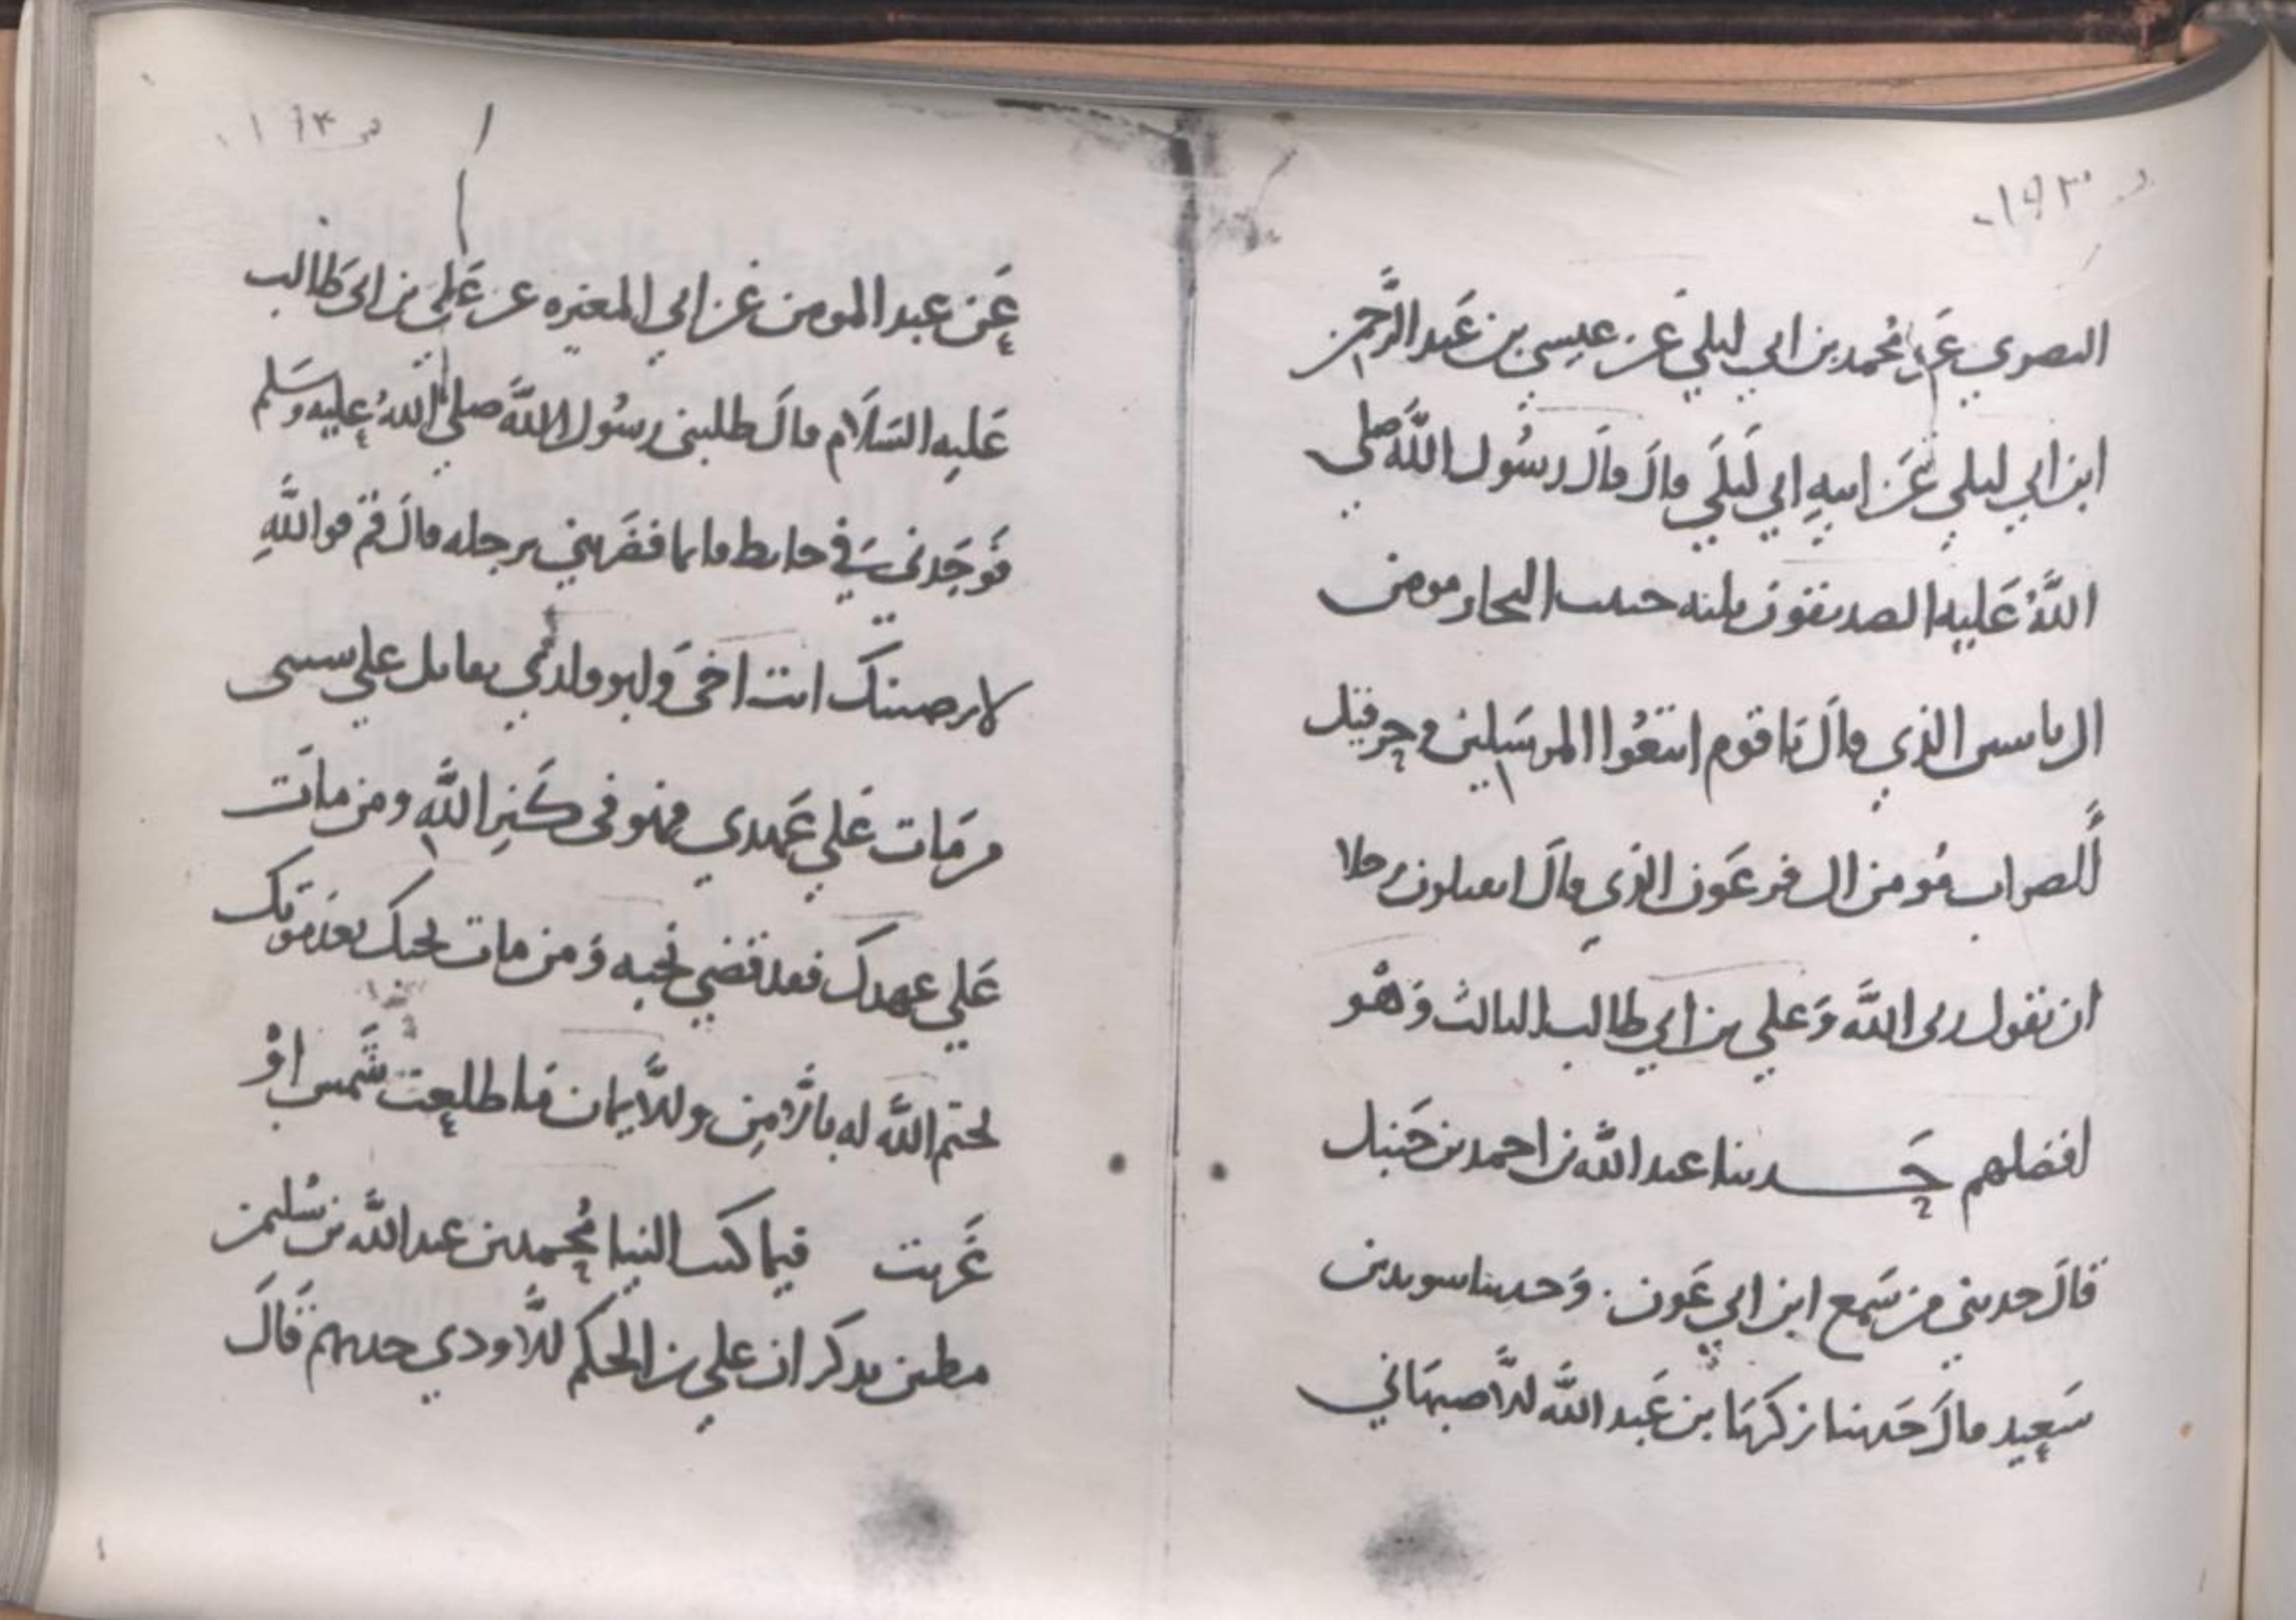 ١٩٣
البصري عن محمد بن ابي ليلي عن عيسي بن عبد الرحمن
ابن ابي ليلي عن ابيه ابي ليلي قال قال رسول الله صلي
الله عليه الصديقون ثلثه حبيب النجار مومن
ال ياسين الذي قال يا قوم اتبعوا المرسلين وحزقيل
الصواب مومن ال فرعون الذي قال اتقتلون رجلا
ان يقول ربي الله وعلي بن ابي طالب الثالث وهو
افضلهم حدثنا عبد الله بن احمد بن حنبل
قال حدثني من سمع ابن ابي عون وحدثنا سويد بن
سعيد قال حدثنا زكريا بن عبد الله الاصبهاني
١٩٤
عن عبد المومن عن ابي المغيره عن علي بن ابي طالب
عليه السلام قال طلبني رسول الله صلي الله عليه وسلم
فوجدني في حايط نايما فضربني برجله قال قم فو الله
لارضينك انت اخي وابو ولدي تقاتل علي سنتي
من مات علي عهدي فهو في كنز الله ومن مات
علي عهدك فقد قضي نحبه ومن مات يحبك بعد موتك
يختم الله له بالامن والايمان ما طلعت شمس او
غربت فيما كتب الينا محمد بن عبد الله بن سليمن
مطين يذكر ان علي بن الحكم الاودي حدثهم قال